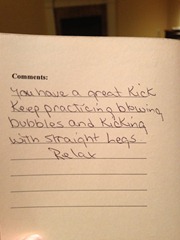 Comments:
You have a great Kick
Keep practicing blowing
bubbles and Kicking
with straight Legs
Relax